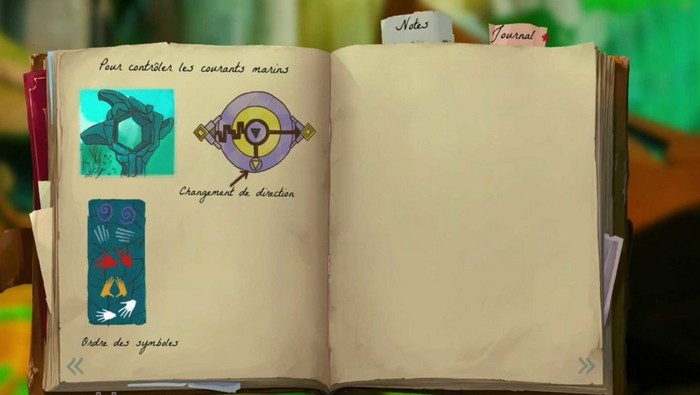 Notes
Journal
Pour contrôler les courants marins
Changement de direction
Ordre des symboles